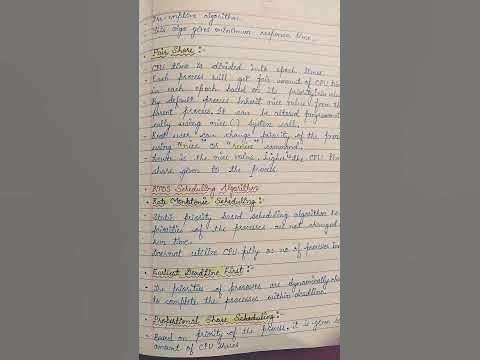 - Pre-emptive algorithm.
- This algo gives minimum response time.
• Fair Share :-
- CPU time is divided into epoch times.
- Each process will get fair amount of CPU time
in each epoch based on its priority/nice value
- By default process inherit nice value from the
parent process. It can be altered
using nice() system call.
- Root user can change priority of the process
using "nice" or "renice" command.
- Lower is the nice value, higher the CPU time
share given to the process.
RTOS Scheduling Algorithm
• Rate Monotonic Scheduling :-
- Static priority based scheduling algorithm
priorities of the processes are not changed
run time.
- Doesnot utilize CPU fully as no of processes
• Earliest Deadline First :-
- The priorities of processes are dynamically
to complete the processes within deadline.
• Proportional Share Scheduling :-
- Based on priority of the process, it is given
amount of CPU shares